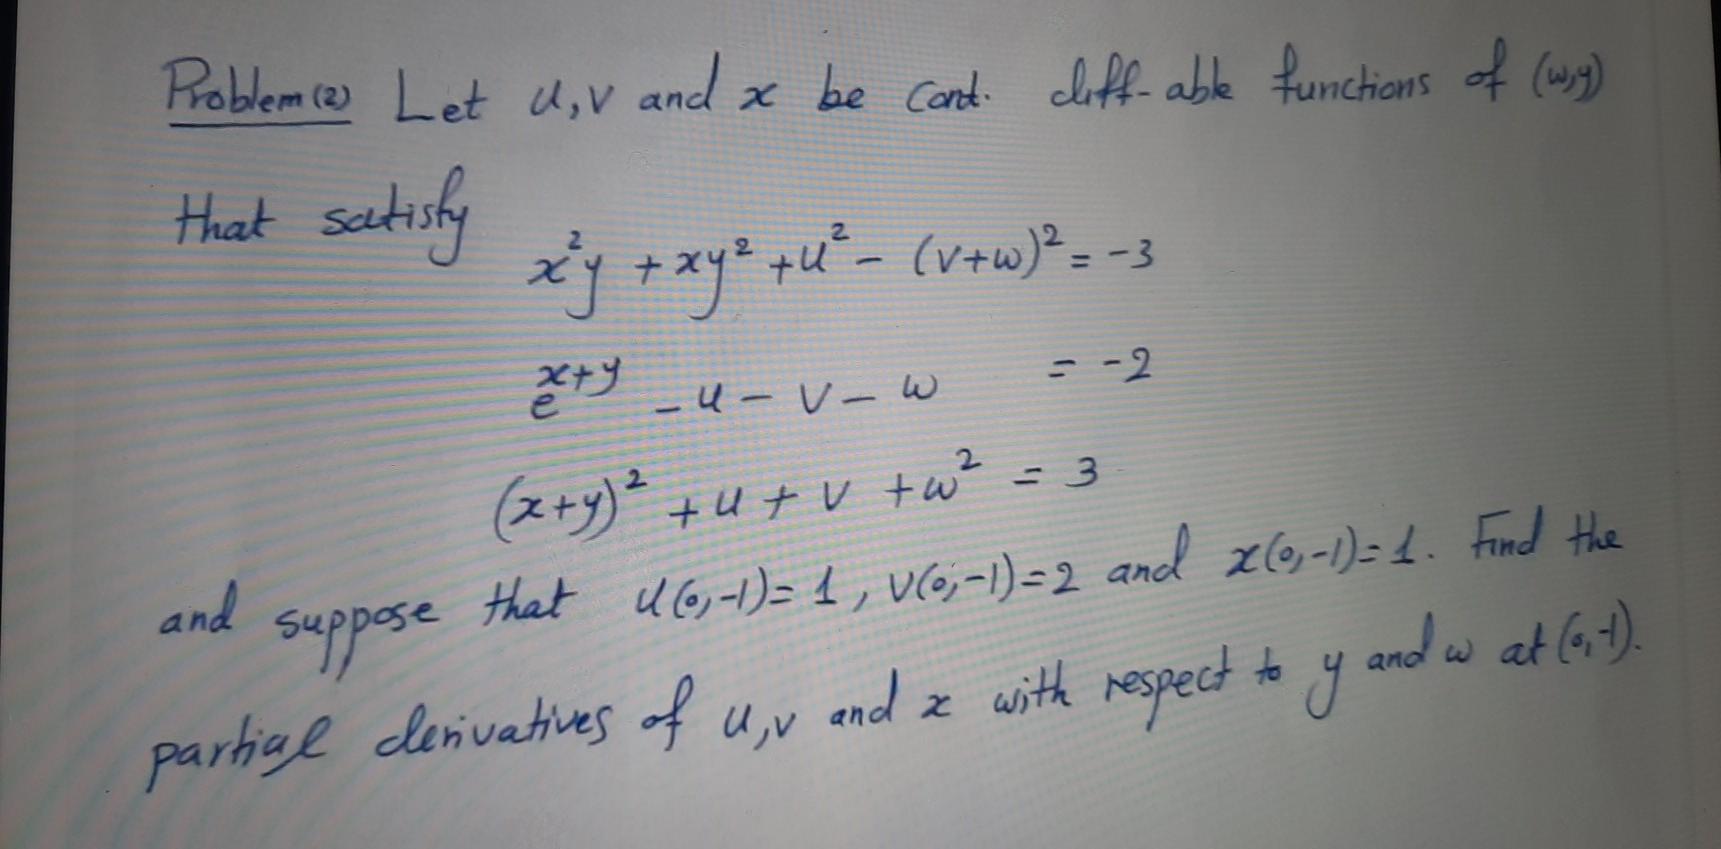 Problem (2) Let u, v and x be cont. diff-able functions of (w,y)
that satisfy
x²y + xy² + u² - (v+w)² = -3
e^{x+y} - u - v - w = -2
(x+y)² + u + v + w² = 3
and suppose that u(0,-1) = 1, v(0,-1) = 2 and x(0,-1) = 1. Find the
partial derivatives of u, v and x with respect to y and w at (0,-1).